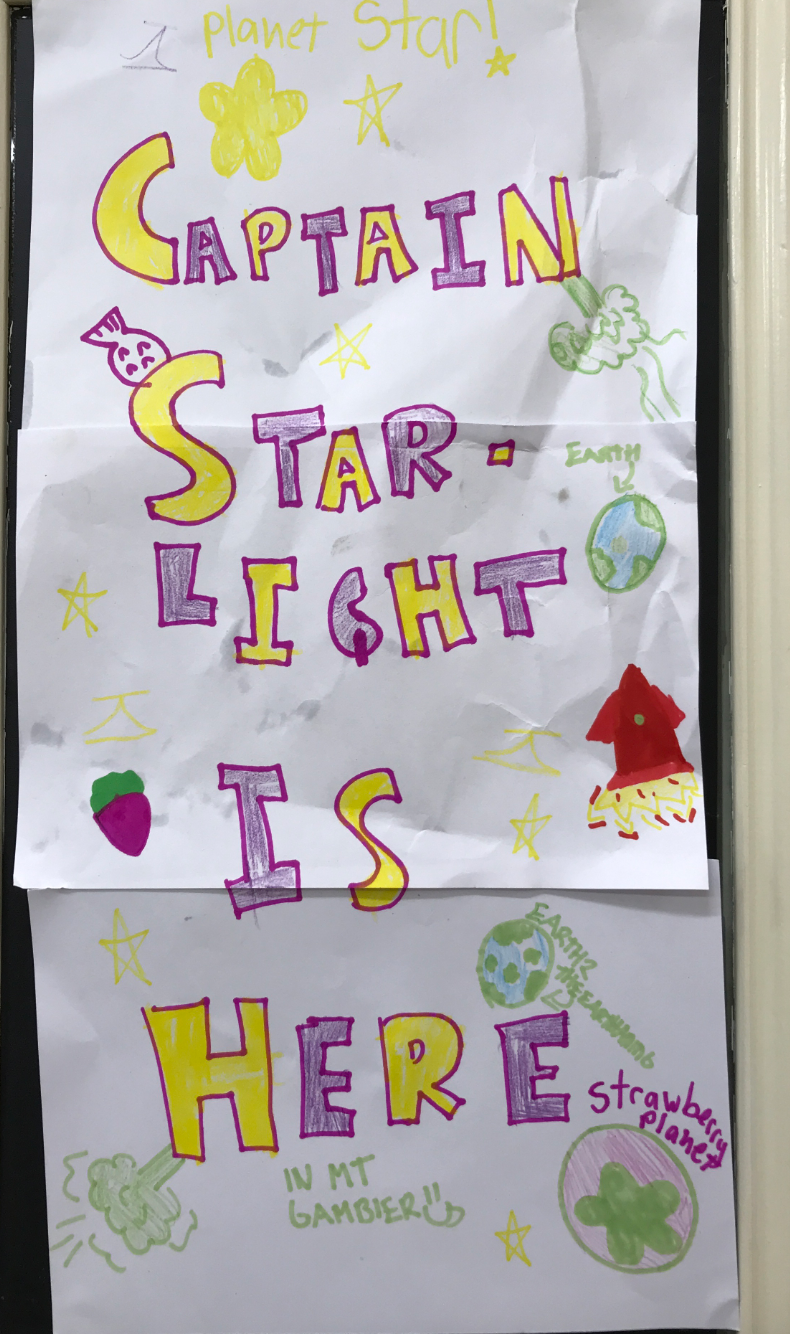 Planet Star!
CAPTAIN
STAR-
EARTH
LIGHT
IS
EARTH 2
HERE
strawberry
planet
IN MT
GAMBIER